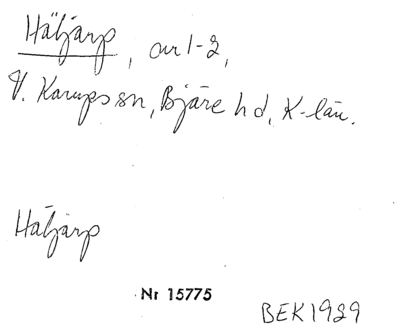 Häljarp, arl-2,
V. Karups sn, Bjäre hd, K-län.
Häljarp
Nr 15775
BEK 1929